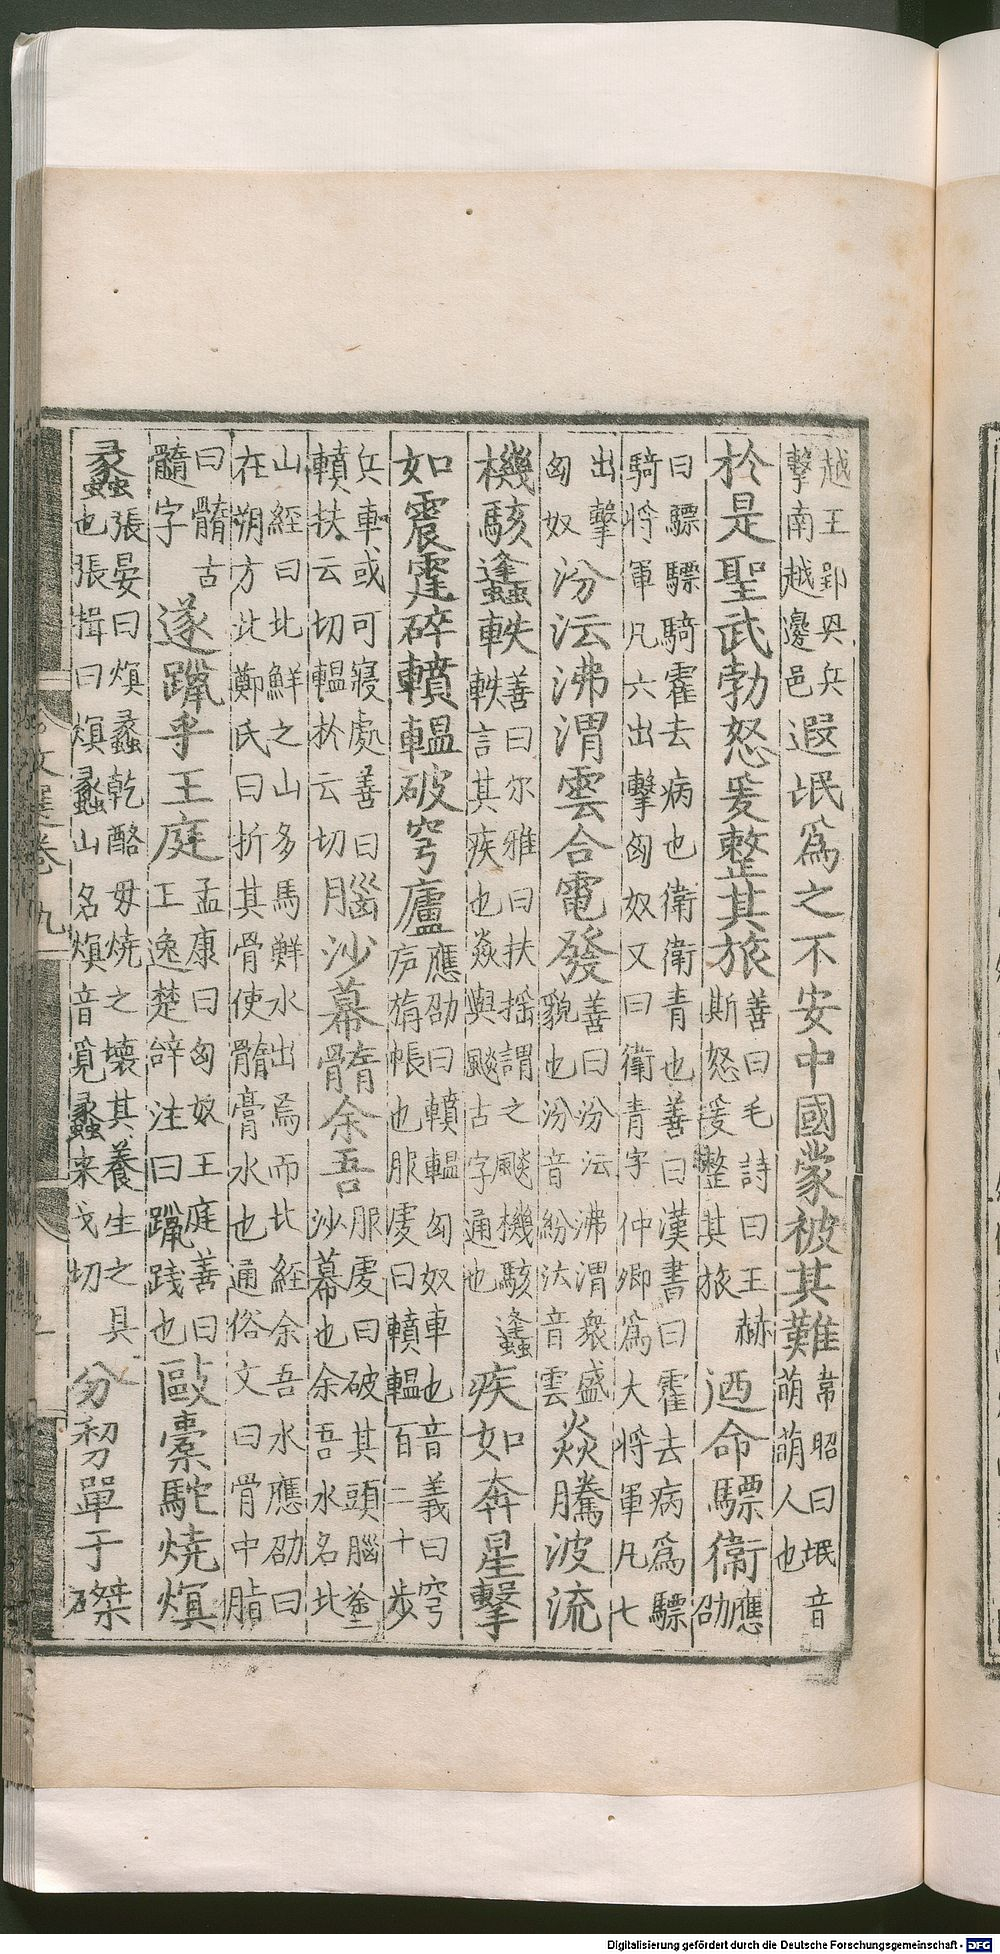 越王郢興兵擊南越邊邑遐氓爲之不安中國蒙被其難韋昭曰氓音萌萌人也
於是聖武勃怒爰整其旅善曰毛詩曰王赫斯怒爰整其旅迺命驃衞應劭
曰驃驃騎霍去病也衛衛青也善曰漢書曰霍去病爲驃騎將軍凡六出擊匈奴又曰衛青字仲卿爲大將軍凡七
出擊匈奴汾沄沸渭雲合電發善曰汾沄沸渭衆盛貌也汾音紛沄音雲猋騰波流
機駭蠭軼善曰尔雅曰扶揺謂之颷機駭蠭軼言其疾也猋與颷古字通也疾如奔星擊
如震霆碎轒轀破穹廬應劭曰轒轀匈奴車也音義曰穹庐旃帳也服虔曰轒轀百二十步
兵車或可寢處善曰轒扶云切轀於云切腦沙幕髓余吾服虔曰破其頭腦塗沙幕也余吾水名北
山經曰北鮮之山多馬鮮水出焉而北經余吾水應劭曰在朔方北鄭氏曰折其骨使髓膏水也通俗文曰骨中脂
曰髓髓古字遂躐乎王庭孟康曰匈奴王庭善曰王逸楚辭注曰躐践也敺橐駝燒熐
蠡張晏曰熐蠡乾酪毋燒之壞其養生之具也張揖曰熐蠡山名熐音覓蠡来戈切分剺單于磔
文選卷九